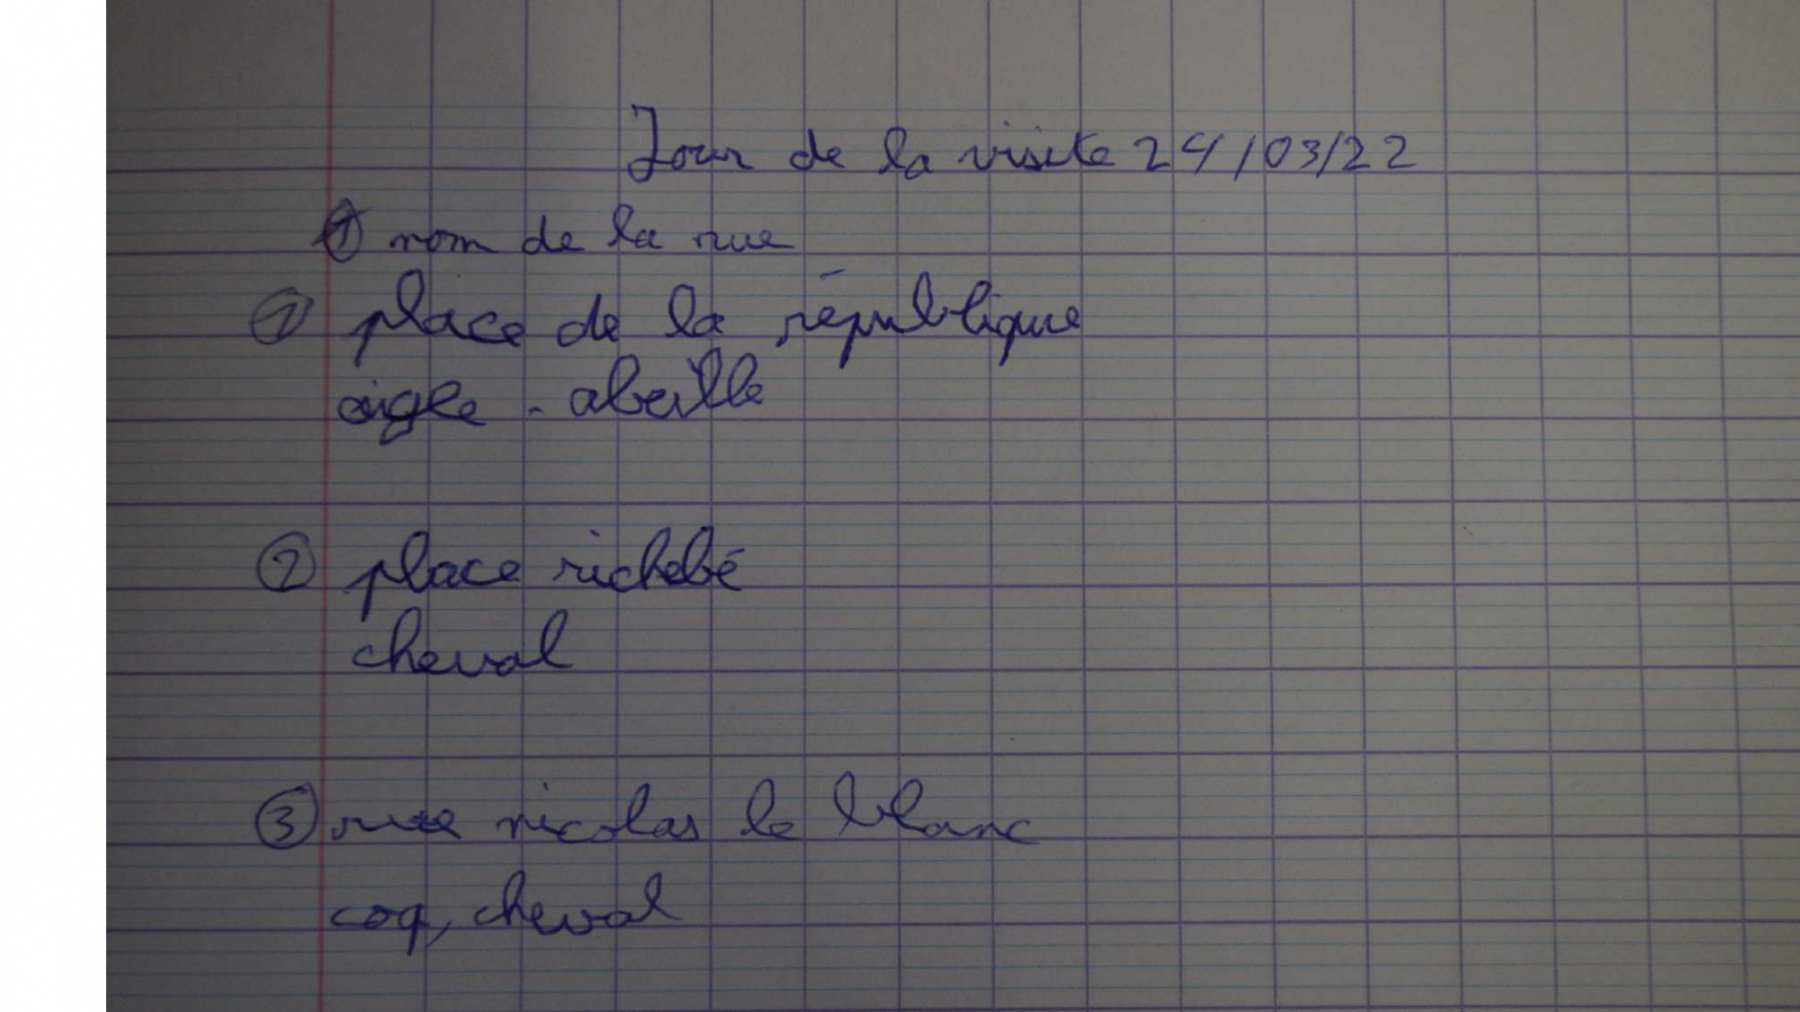 Jour de la visite 24/03/22
① nom de la rue
① place de la république
aigle - abeille
② place richebé
cheval
③ rue nicolas le blanc
coq, cheval